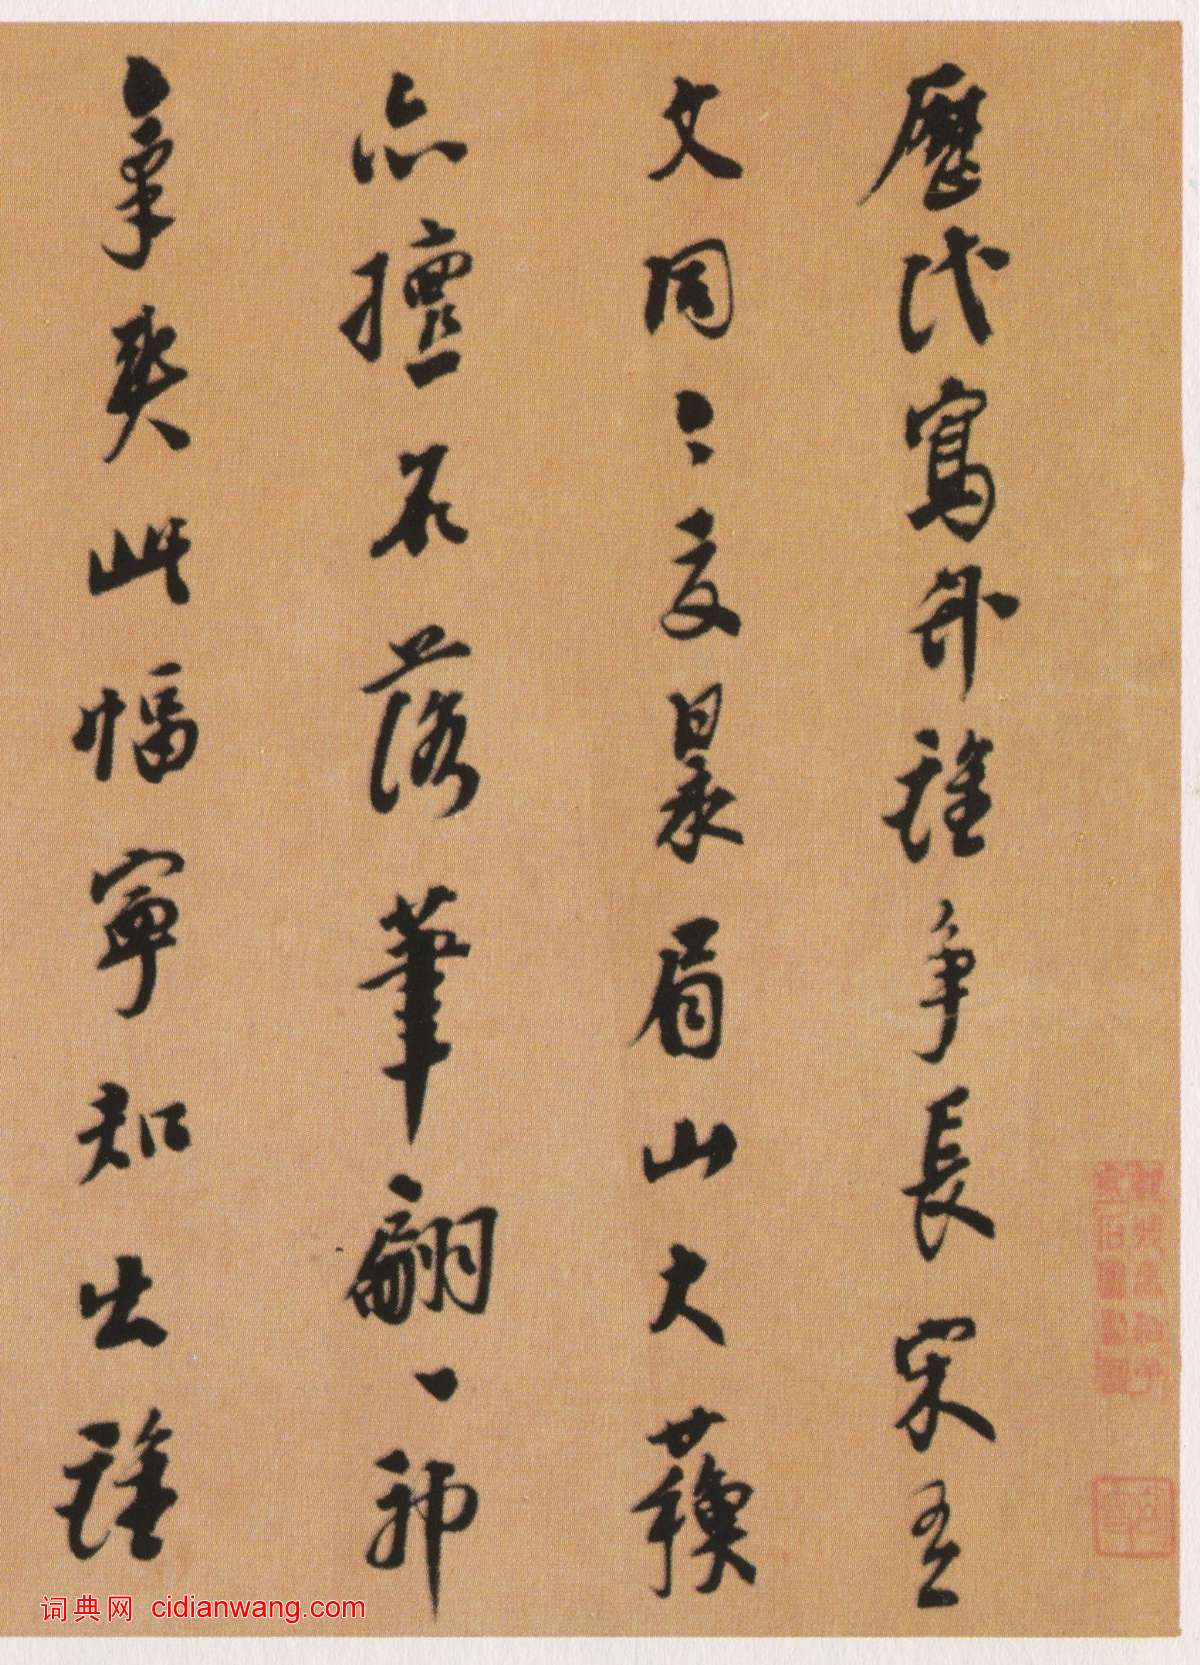 歷代寫竹誰爭長宋
文同今夏昶眉山大蘇
亦擅名落筆翩〻神
氣爽此幅寧知出誰
词典网 cidianwang.com